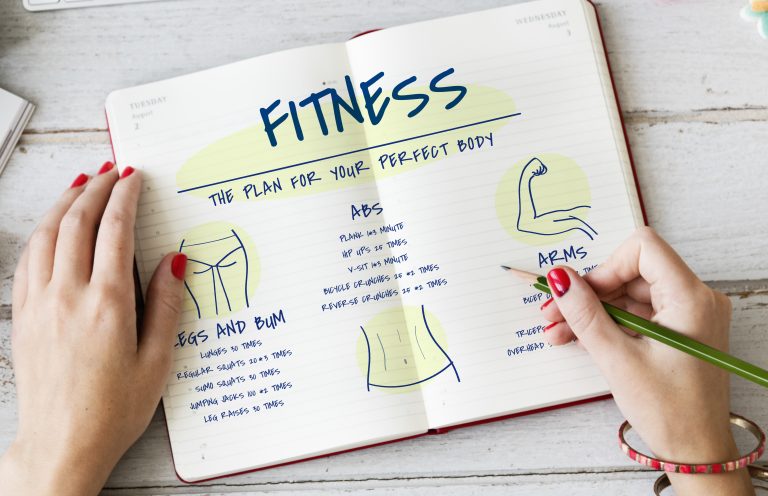 TUESDAY
August
2
WEDNESDAY
August
3
FITNESS
THE PLAN FOR YOUR PERFECT BODY
ABS
PLANK 1*3 MINUTE
HIP UPS 25 TIMES
V-SIT 1*3 MINUTE
BICYCLE CRUNCHES 25 *2 TIMES
REVERSE CRUNCHES 25 *2 TIMES
LEGS AND BUM
LUNGES 30 TIMES
REGULAR SQUATS 20 *3 TIMES
SUMO SQUATS 30 TIMES
JUMPING JACKS 100 *2 TIMES
LEG RAISES 30 TIMES
ARMS
OVERHEAD